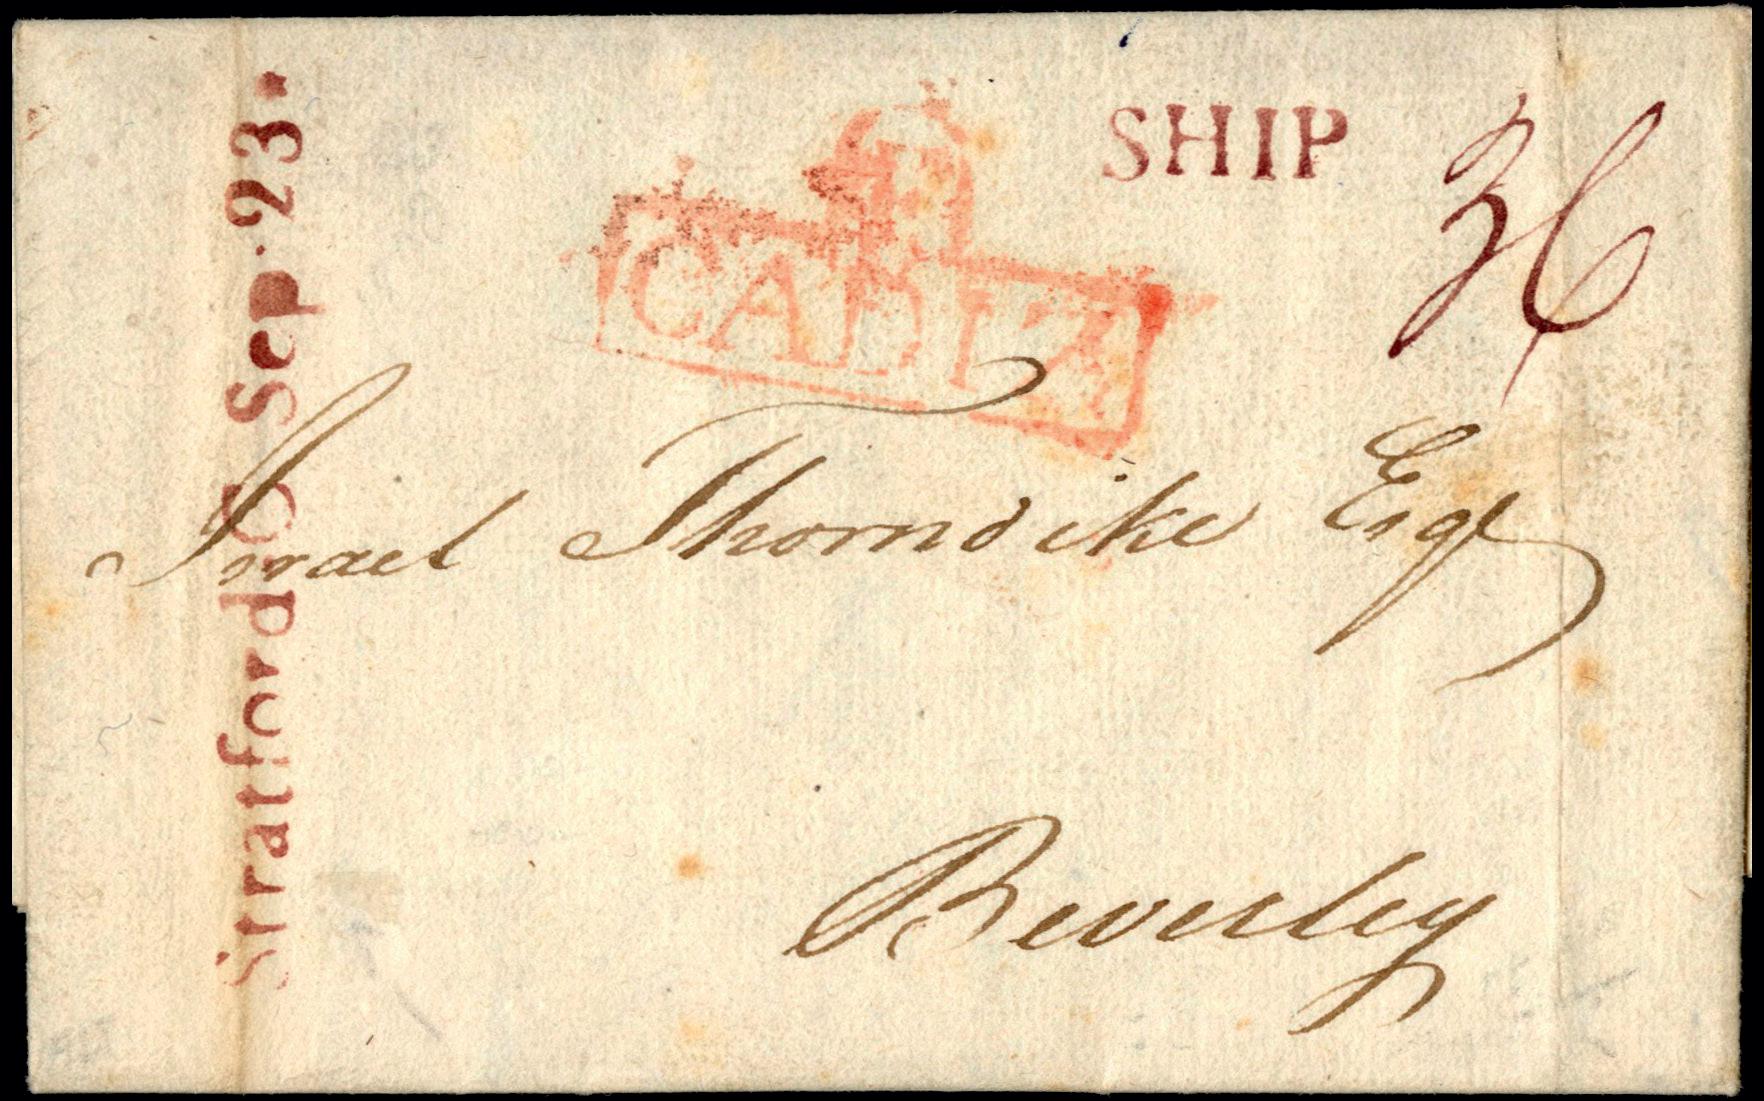 SHIP
36
CADIZ
Stratford C Sep. 23.
Israel Thorndike Esqr
Beverley